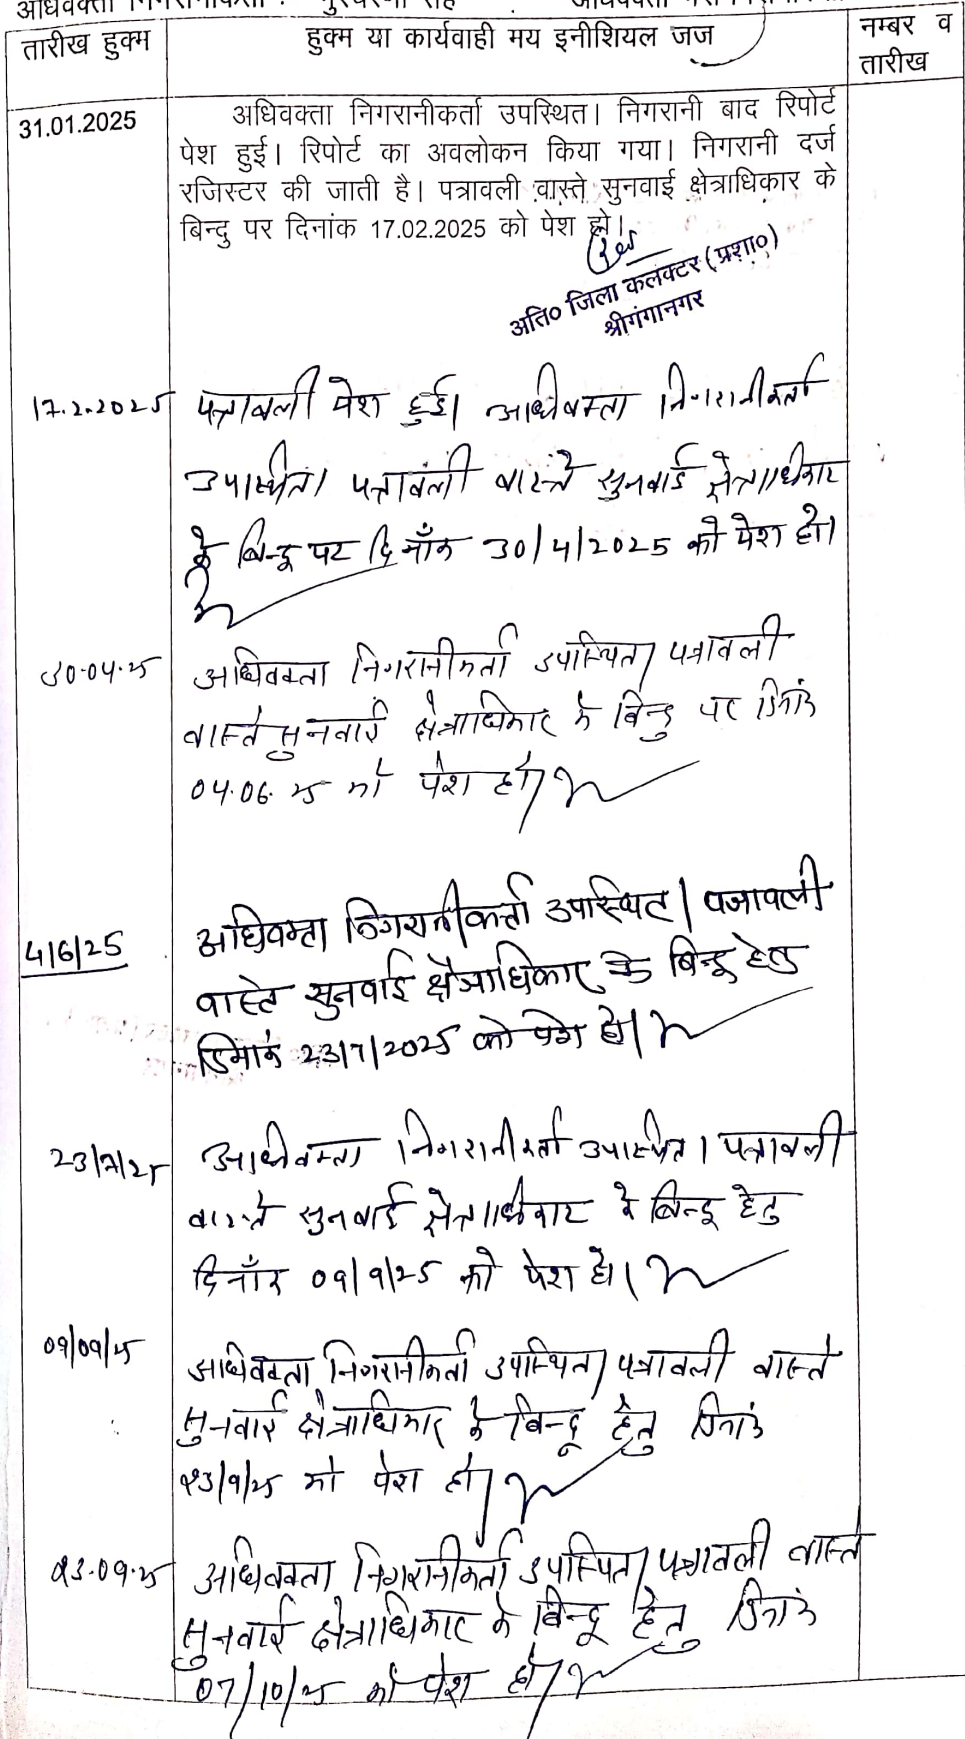 अधिवक्ता निगरानीकर्ता :
तारीख हुक्म
हुक्म या कार्यवाही मय इनीशियल जज
नम्बर व
तारीख
31.01.2025
अधिवक्ता निगरानीकर्ता उपस्थित। निगरानी बाद रिपोर्ट
पेश हुई। रिपोर्ट का अवलोकन किया गया। निगरानी दर्ज
रजिस्टर की जाती है। पत्रावली वास्ते सुनवाई क्षेत्राधिकार के
बिन्दु पर दिनांक 17.02.2025 को पेश हो।
अति० जिला कलक्टर (प्रशा०)
श्रीगंगानगर
17.2.2025
पत्रावली पेश हुई। अधिवक्ता निगरानीकर्ता
उपस्थित। पत्रावली वास्ते सुनवाई क्षेत्राधिकार
के बिन्दू पर दिनाँक 30/4/2025 को पेश हो।
30.04.25
अधिवक्ता निगरानीकर्ता उपस्थित। पत्रावली
वास्ते सुनवाई क्षेत्राधिकार के बिन्दु पर दिनांक
04.06.25 को पेश हो।
4/6/25
अधिवक्ता निगरानीकर्ता उपस्थित। पत्रावली
वास्ते सुनवाई क्षेत्राधिकार के बिन्दू हेतु
दिनांक 23/7/2025 को पेश हो।
23/7/25
अधिवक्ता निगरानीकर्ता उपस्थित। पत्रावली
वास्ते सुनवाई क्षेत्राधिकार के बिन्दू हेतु
दिनाँक 09/9/25 को पेश हो।
09/09/25
अधिवक्ता निगरानीकर्ता उपस्थित। पत्रावली वास्ते
सुनवाई क्षेत्राधिकार के बिन्दू हेतु दिनांक
23/9/25 को पेश हो।
23.09.25
अधिवक्ता निगरानीकर्ता उपस्थित। पत्रावली वास्ते
सुनवाई क्षेत्राधिकार के बिन्दू हेतु दिनांक
07/10/25 को पेश हो।